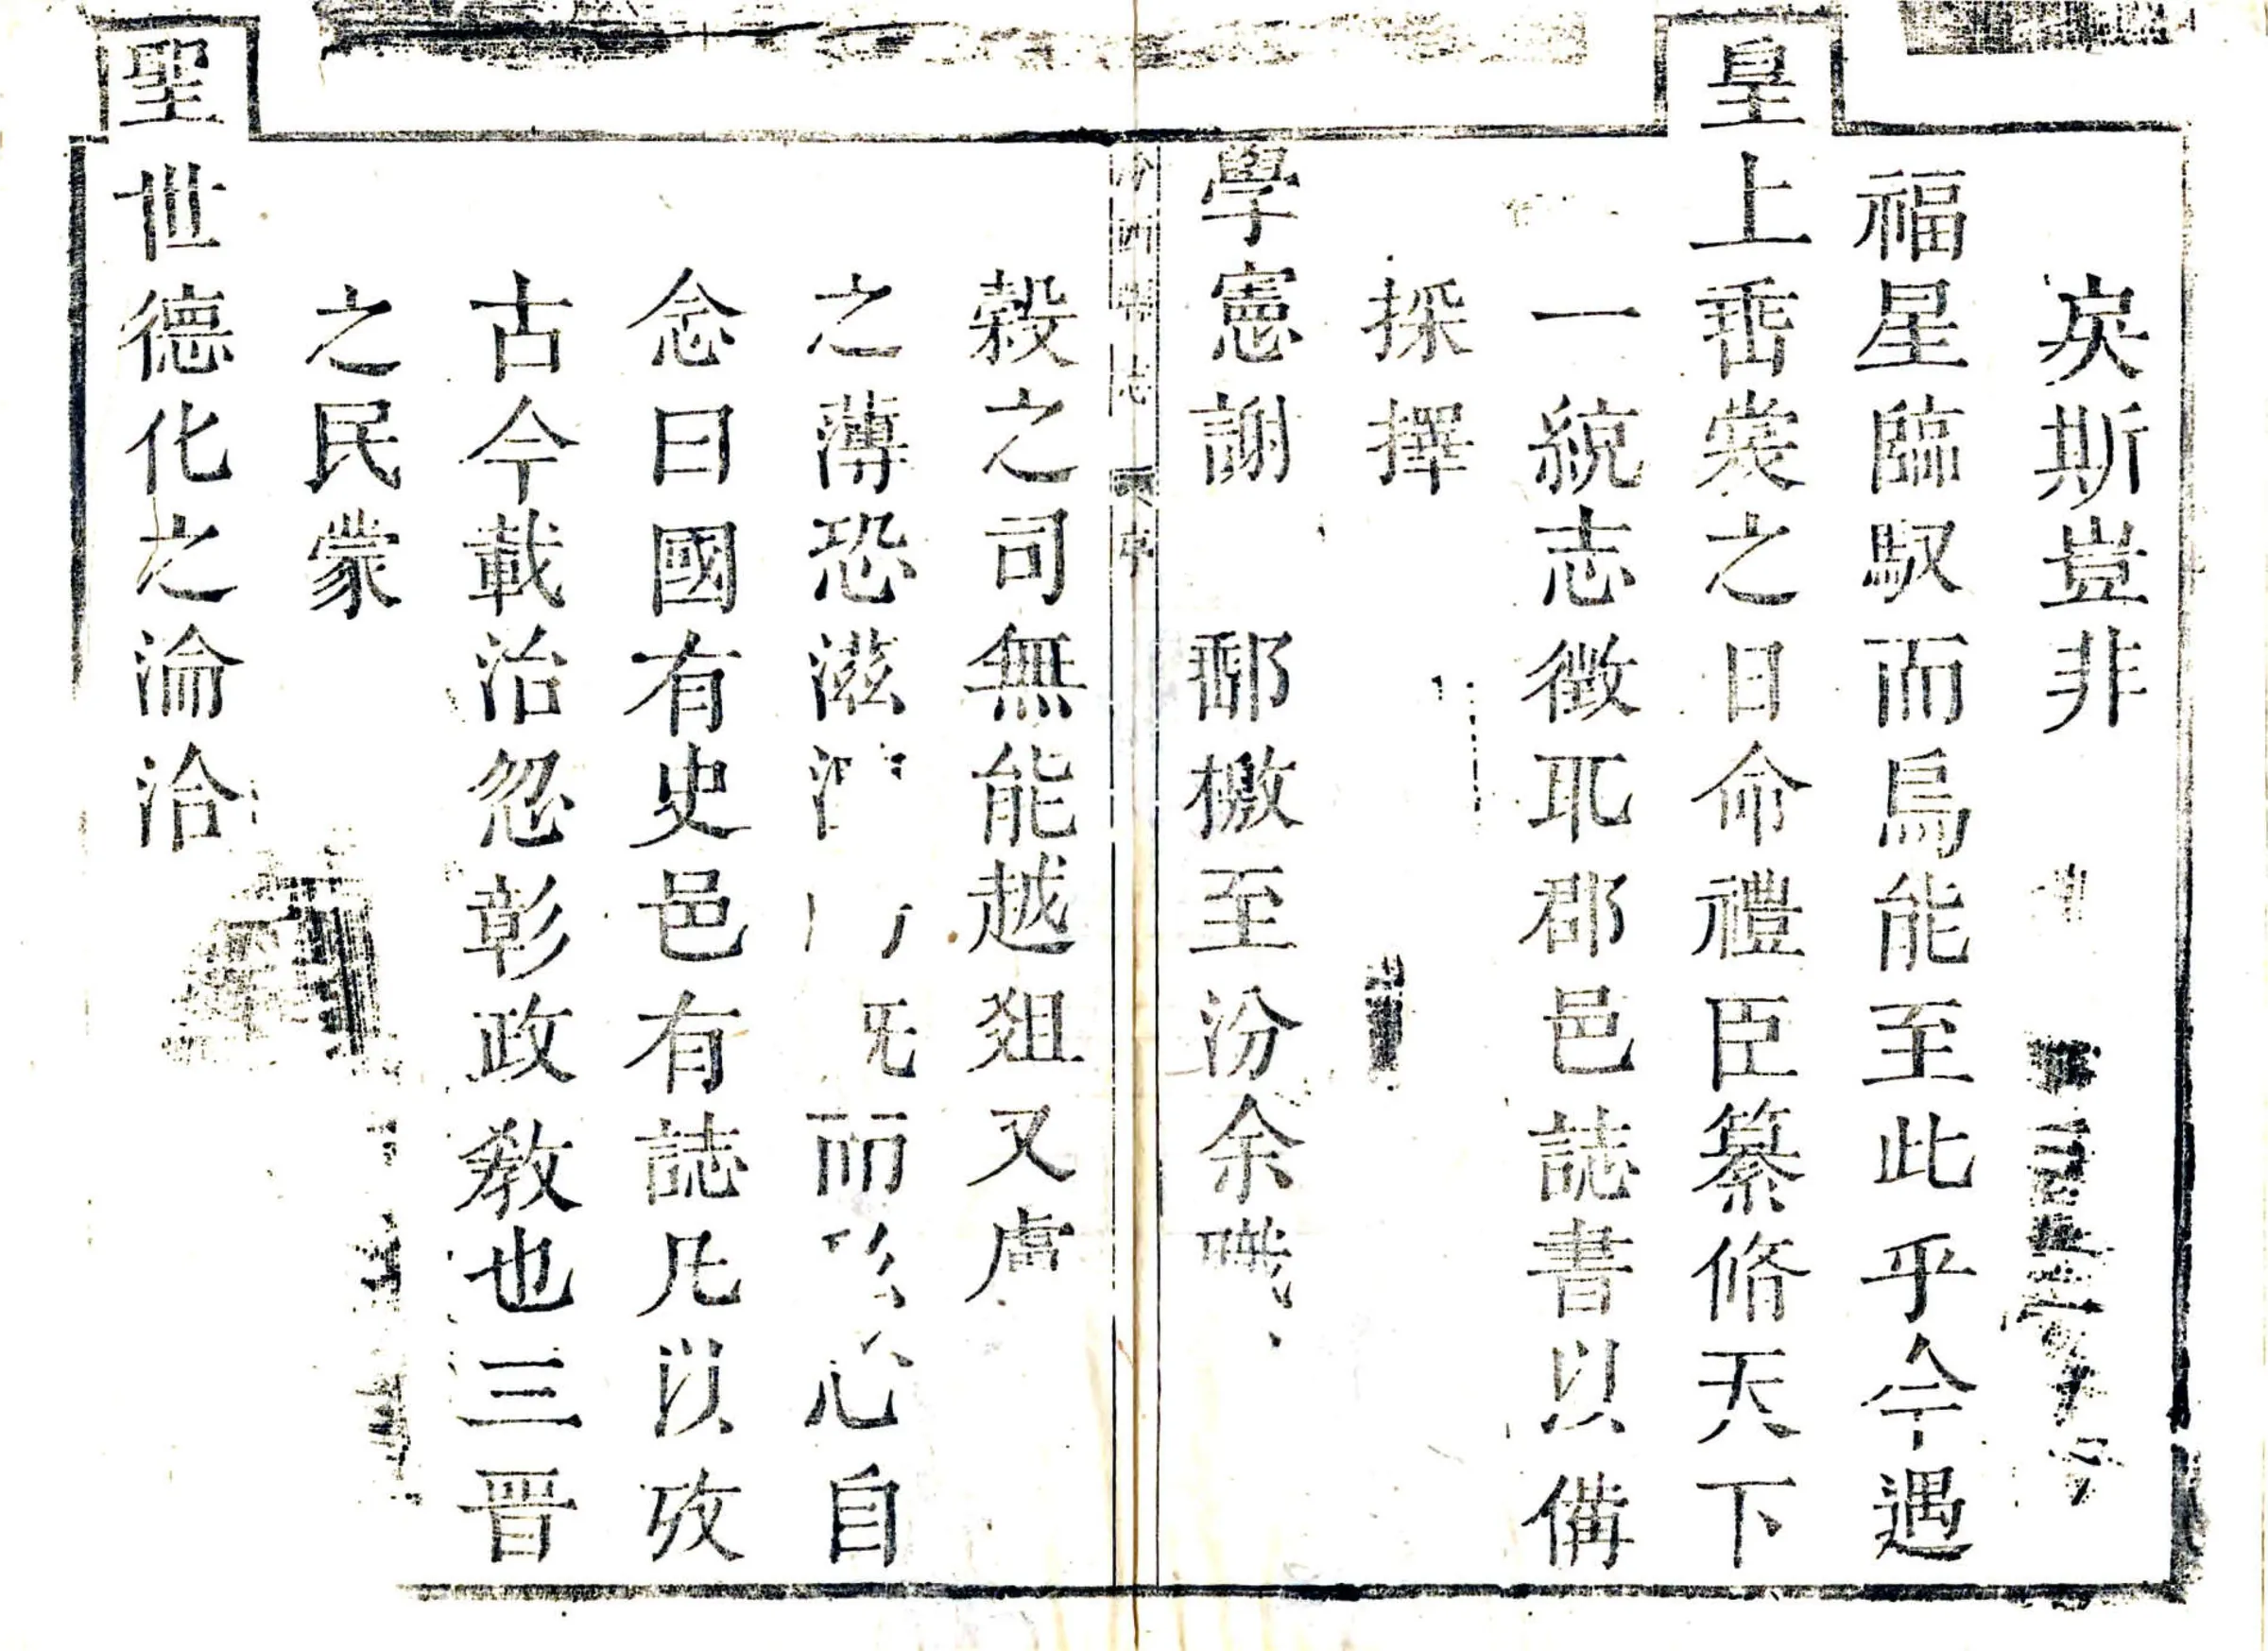 矦斯豈非
福星臨馭而烏能至此乎今遇
皇上垂裳之日命禮臣纂脩天下
一統志徵取郡邑誌書以備
採擇
學憲謝 郵檄至汾余職
汾西縣志
穀之司無能越俎又慮
之薄恐滋 而 心自
念曰國有史邑有誌凡以攷
古今載治忽彰政教也三晋
之民蒙
聖世德化之淪洽